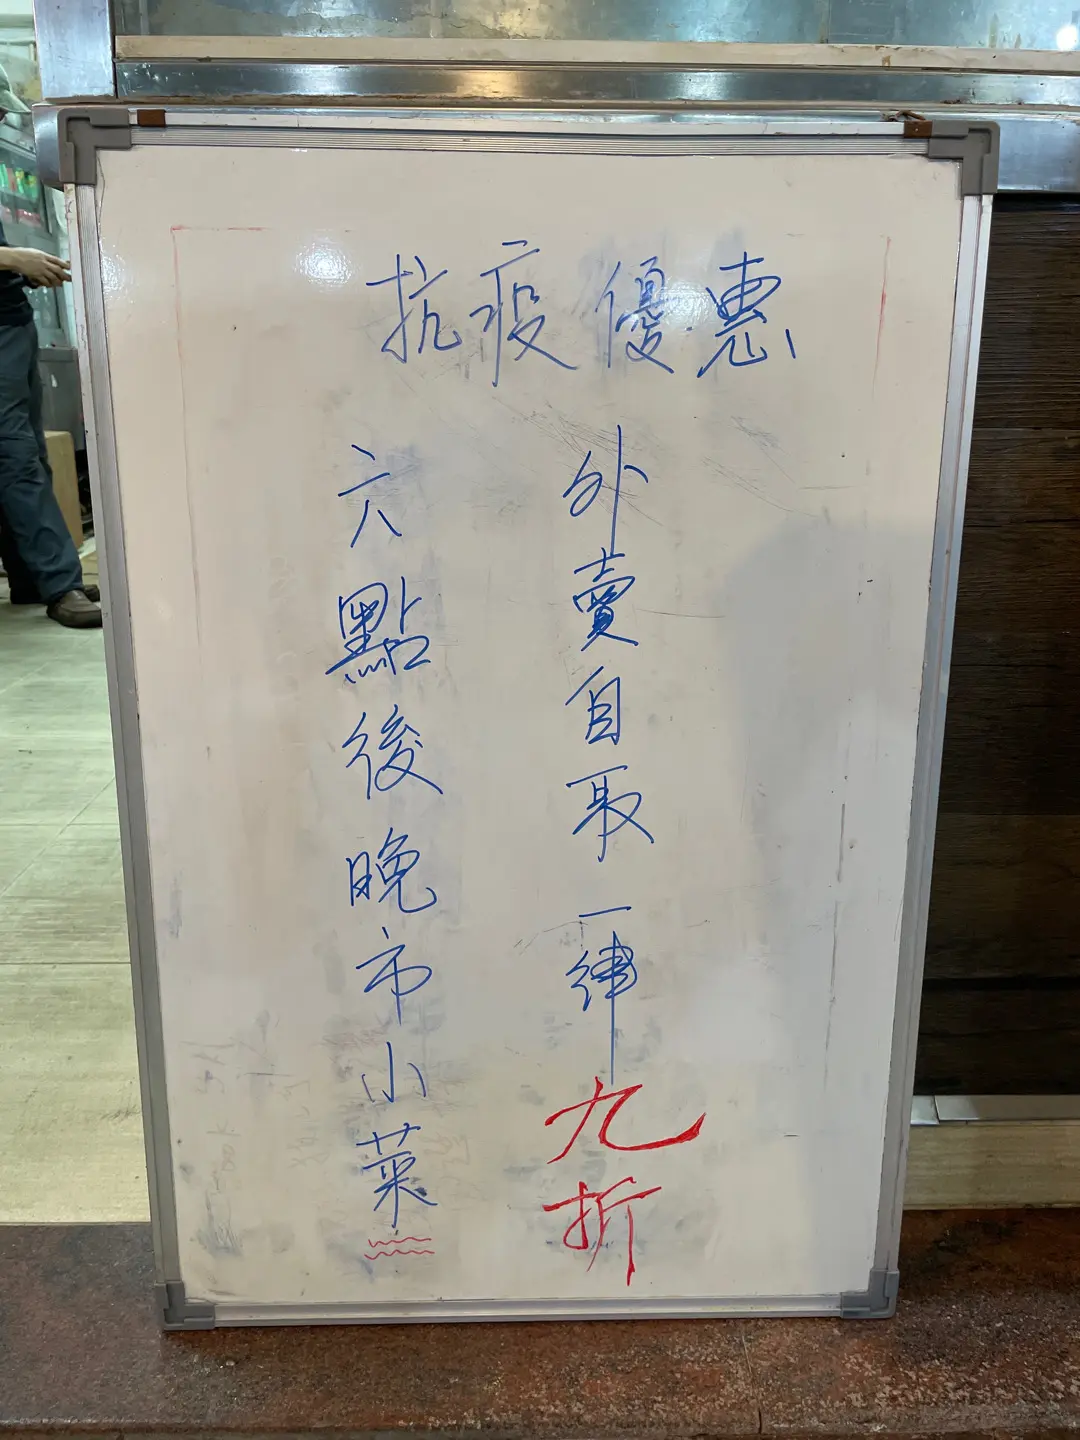 抗疫優惠
外賣自取一律九折
六點後晚市小菜